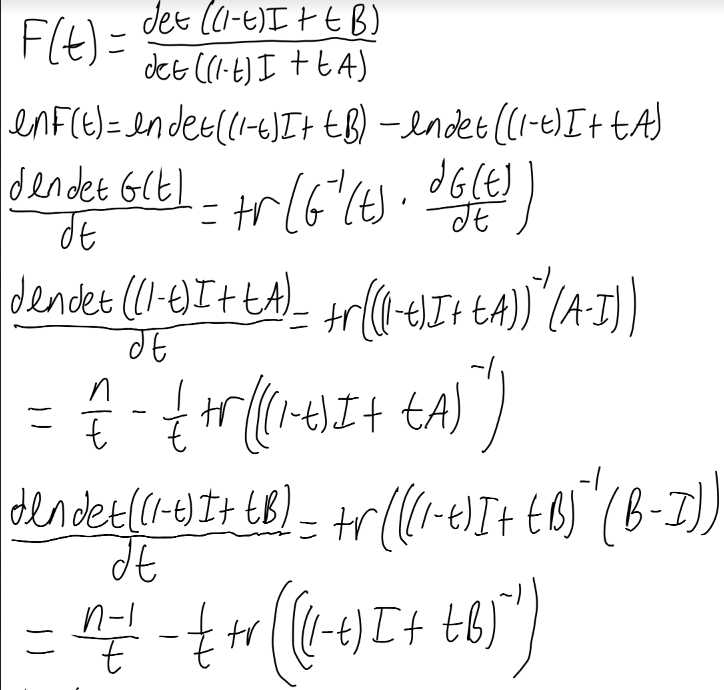 F(t) = det((1-t)I + tB) / det((1-t)I + tA)
ln F(t) = ln det((1-t)I + tB) - ln det((1-t)I + tA)
d ln det G(t) / dt = tr(G⁻¹(t) · dG(t)/dt)
d ln det((1-t)I + tA) / dt = tr(((1-t)I + tA))⁻¹(A-I))
= n/t - 1/t tr(((1-t)I + tA)⁻¹)
d ln det((1-t)I + tB) / dt = tr(((1-t)I + tB)⁻¹(B-I))
= n-1/t - 1/t tr(((1-t)I + tB)⁻¹)